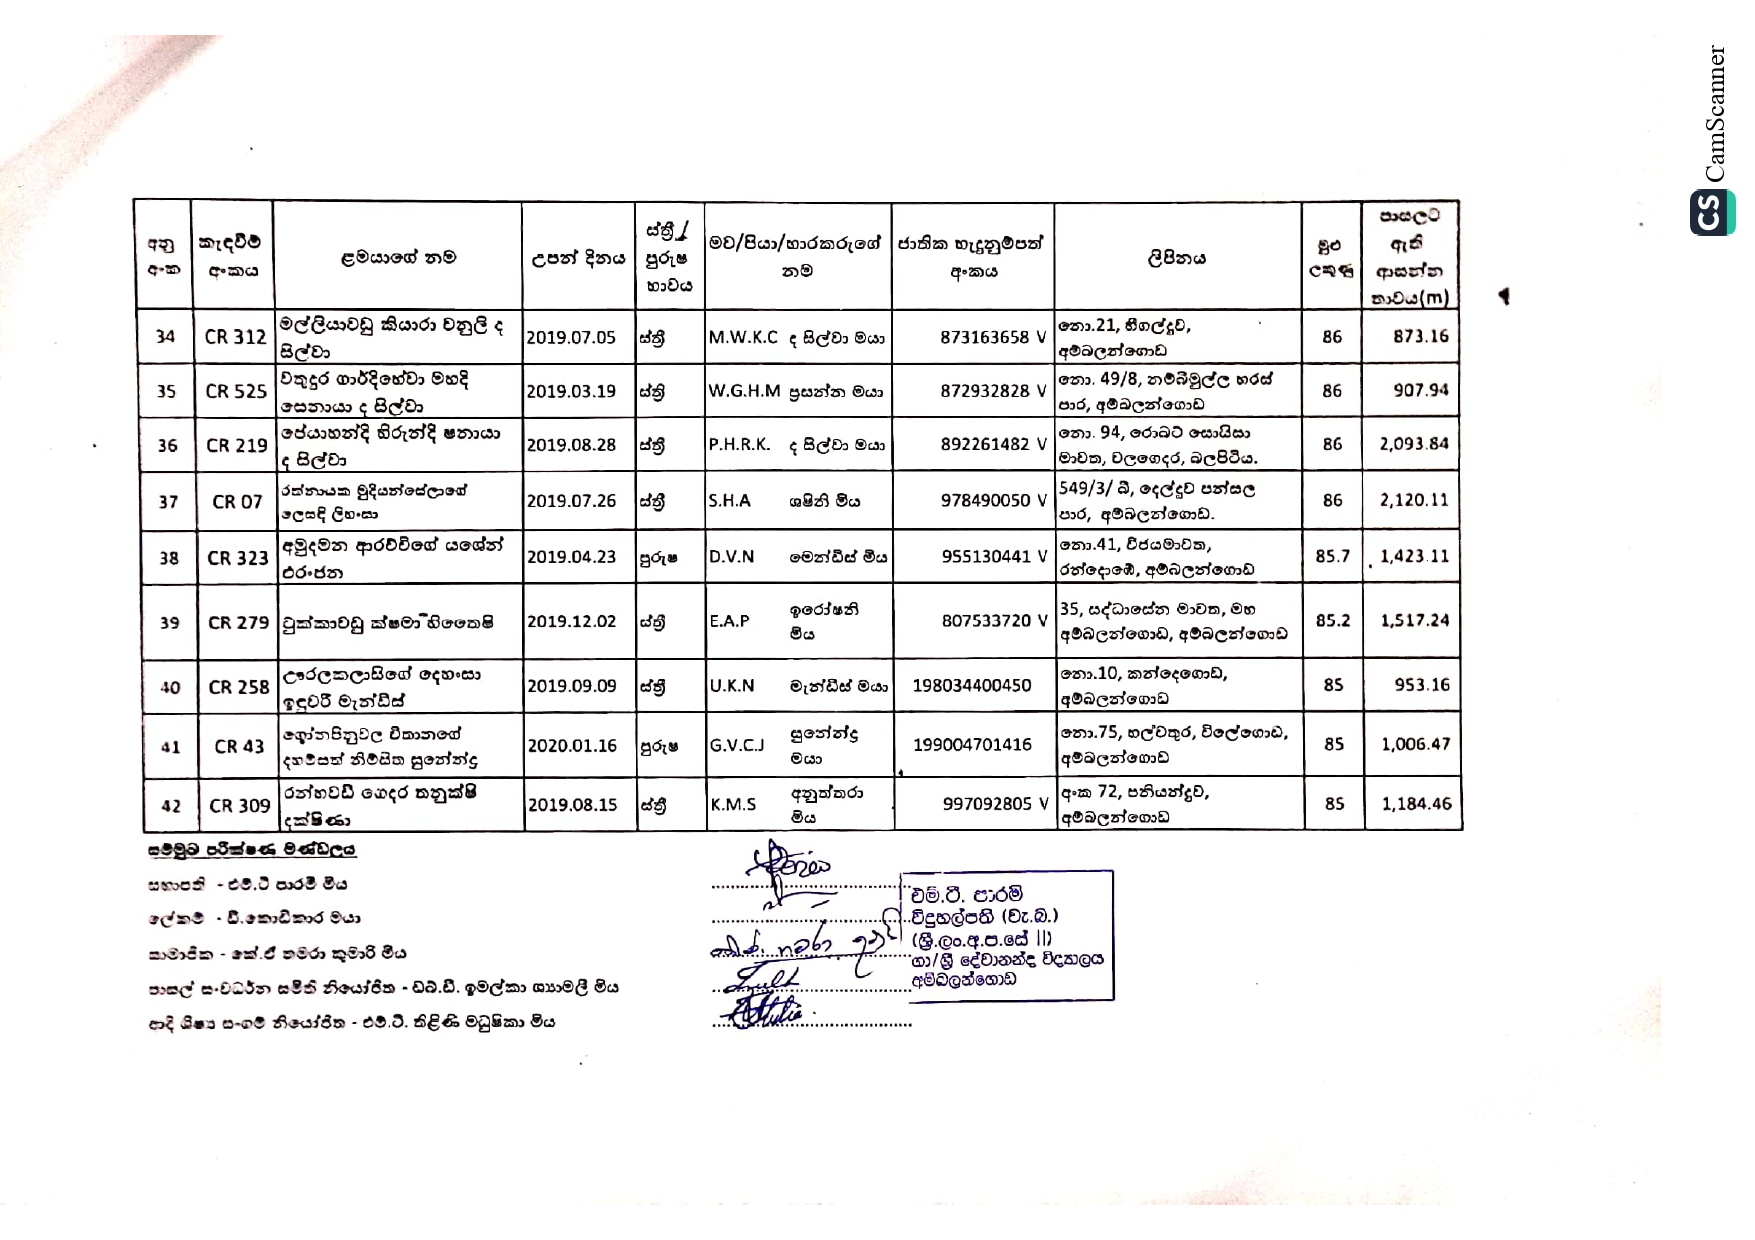 CamScanner
CS
අනු අංක | කැඳවීම් අංකය | ළමයාගේ නම | උපන් දිනය | ස්ත්‍රී/ පුරුෂ භාවය | මව/පියා/භාරකරුගේ නම | ජාතික හැඳුනුම්පත් අංකය | ලිපිනය | මුළු ලකුණු | පාසලට ඇති ආසන්න තාවය(m)
34 | CR 312 | මල්ලියාවඩු කියාරා වනුලි ද සිල්වා | 2019.07.05 | ස්ත්‍රී | M.W.K.C ද සිල්වා මයා | 873163658 V | නො.21, හීගල්දූව, අම්බලන්ගොඩ | 86 | 873.16
35 | CR 525 | වතුදුර ගාර්දිහේවා මහදි සෙනායා ද සිල්වා | 2019.03.19 | ස්ත්‍රී | W.G.H.M ප්‍රසන්න මයා | 872932828 V | නො. 49/8, නම්බිමුල්ල හරස් පාර, අම්බලන්ගොඩ | 86 | 907.94
36 | CR 219 | ජේයාහන්දි හිරුන්දි ෂනායා ද සිල්වා | 2019.08.28 | ස්ත්‍රී | P.H.R.K. ද සිල්වා මයා | 892261482 V | නො. 94, රොබට් සොයිසා මාවත, වලගෙදර, බලපිටිය. | 86 | 2,093.84
37 | CR 07 | රත්නායක මුදියන්සේලාගේ ලෙසඳි ලිහංසා | 2019.07.26 | ස්ත්‍රී | S.H.A ශෂිනි මිය | 978490050 V | 549/3/ බී, දෙල්දූව පන්සල පාර, අම්බලන්ගොඩ. | 86 | 2,120.11
38 | CR 323 | අමුදමන ආරච්චිගේ යශේන් එරංජන | 2019.04.23 | පුරුෂ | D.V.N මෙන්ඩිස් මිය | 955130441 V | නො.41, විජයමාවත, රන්දොඹේ, අම්බලන්ගොඩ | 85.7 | 1,423.11
39 | CR 279 | ටුක්කාවඩු ක්ෂමා හිතෛෂි | 2019.12.02 | ස්ත්‍රී | E.A.P ඉරෝෂනි මිය | 807533720 V | 35, සද්ධාසේන මාවත, මහ අම්බලන්ගොඩ, අම්බලන්ගොඩ | 85.2 | 1,517.24
40 | CR 258 | ඌරලකලාසිගේ දෙහංසා ඉඳුවරී මැන්ඩිස් | 2019.09.09 | ස්ත්‍රී | U.K.N මැන්ඩිස් මයා | 198034400450 | නො.10, කන්දෙගොඩ, අම්බලන්ගොඩ | 85 | 953.16
41 | CR 43 | ගෝනපිනුවල විතානගේ දහම්සත් නිම්සිත සුනේන්ද්‍ර | 2020.01.16 | පුරුෂ | G.V.C.J සුනේන්ද්‍ර මයා | 199004701416 | නො.75, හල්වතුර, විලේගොඩ, අම්බලන්ගොඩ | 85 | 1,006.47
42 | CR 309 | රන්හවඩි ගෙදර තනුක්ෂි දක්ෂිණා | 2019.08.15 | ස්ත්‍රී | K.M.S අනුත්තරා මිය | 997092805 V | අංක 72, පනියන්දූව, අම්බලන්ගොඩ | 85 | 1,184.46
සම්මුඛ පරීක්ෂණ මණ්ඩලය
සභාපති - එම්.ටී පාරමී මිය
ලේකම් - ඩී.කොඩිකාර මයා
සාමාජික - කේ.ඒ තමරා කුමාරි මිය
පාසල් සංවර්ධන සමිති නියෝජිත - ඩබ්.ඩී. ඉමල්කා ශ්‍යාමලී මිය
ආදි ශිෂ්‍ය සංගම් නියෝජිත - එම්.ටී. තිළිණි මධුෂිකා මිය
එම්.ටී. පාරමි
විදුහල්පති (වැ.බ.)
(ශ්‍රී.ලං.අ.ප.සේ II)
ගා/ශ්‍රී දේවානන්ද විද්‍යාලය
අම්බලන්ගොඩ